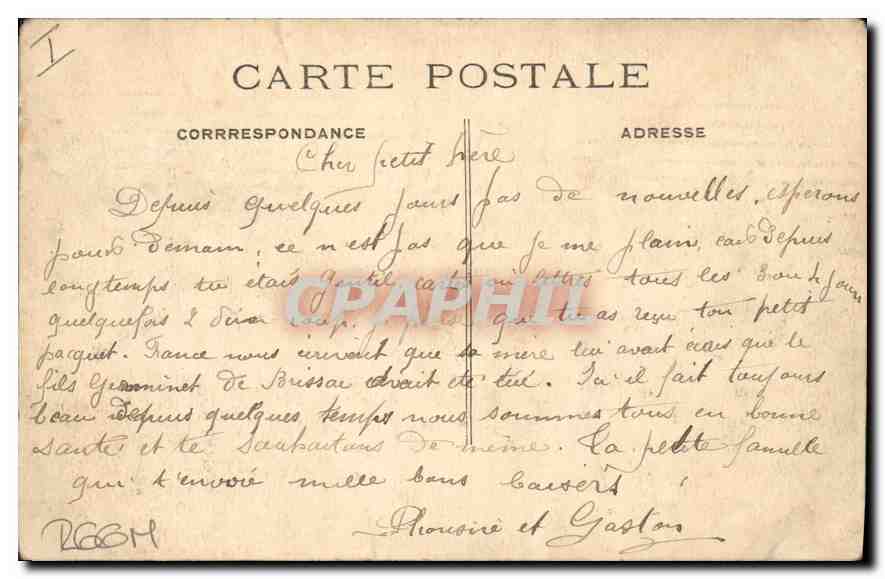 I
CARTE POSTALE
CORRRESPONDANCE
ADRESSE
Cher petit frère
Depuis quelques jours pas de nouvelles, esperons
pour demain, ce n'est pas que je me plain, car depuis
longtemps tu étais gentil, cartes ou lettres tous les 3 ou 4 jours
quelquefois 2 d'un coup. que tu as reçu ton petit
pacquet. France nous écrivait que sa mère lui avait écris que le
fils de Brissac avait été tué. Ici il fait toujours
beau depuis quelques temps nous sommes tous en bonne
santé et te souhaitons de même. Ta petite famille
qui t'envoie mille bons baisers
et Gaston
R66M
CPAPHIL